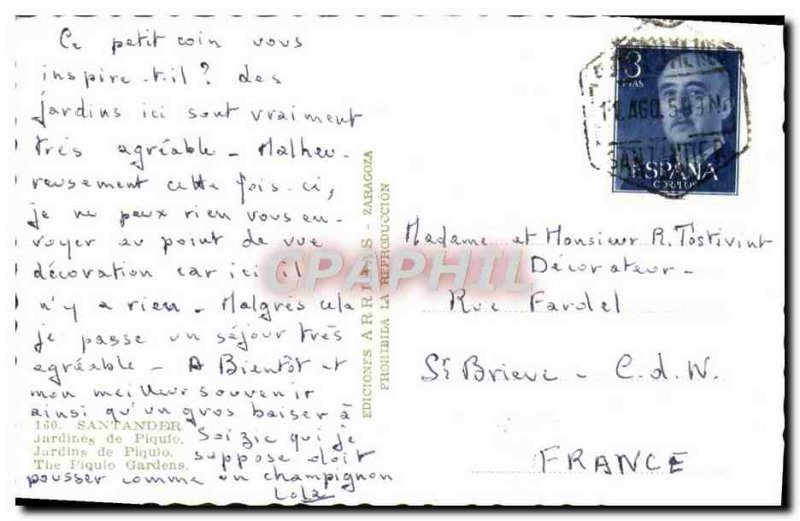 Ce petit coin vous
inspire-t-il? des
jardins ici sont vraiment
très agréable - Malheu-
reusement cette fois-ci,
je ne peux rien vous en-
voyer au point de vue
décoration car ici il
n'y a rien - Malgrès cela
je passe un séjour très
agréable - A Bientôt et
mon meilleur souvenir
ainsi qu'un gros baiser à
Soizic qui je
suppose doit
pousser comme un champignon
Lola
160. SANTANDER
Jardines de Piquío.
Jardins de Piquio.
The Piquio Gardens.
EDICIONES ARRIBAS - ZARAGOZA
PROHIBIDA LA REPRODUCCIÓN
CPAPHIL
3
PTAS
ESPAÑA
CORREOS
11 AGO. 59
SANTANDER
Madame et Monsieur R. Tostivint
Décorateur -
Rue Fardel
St Brieuc - C.d.N.
FRANCE